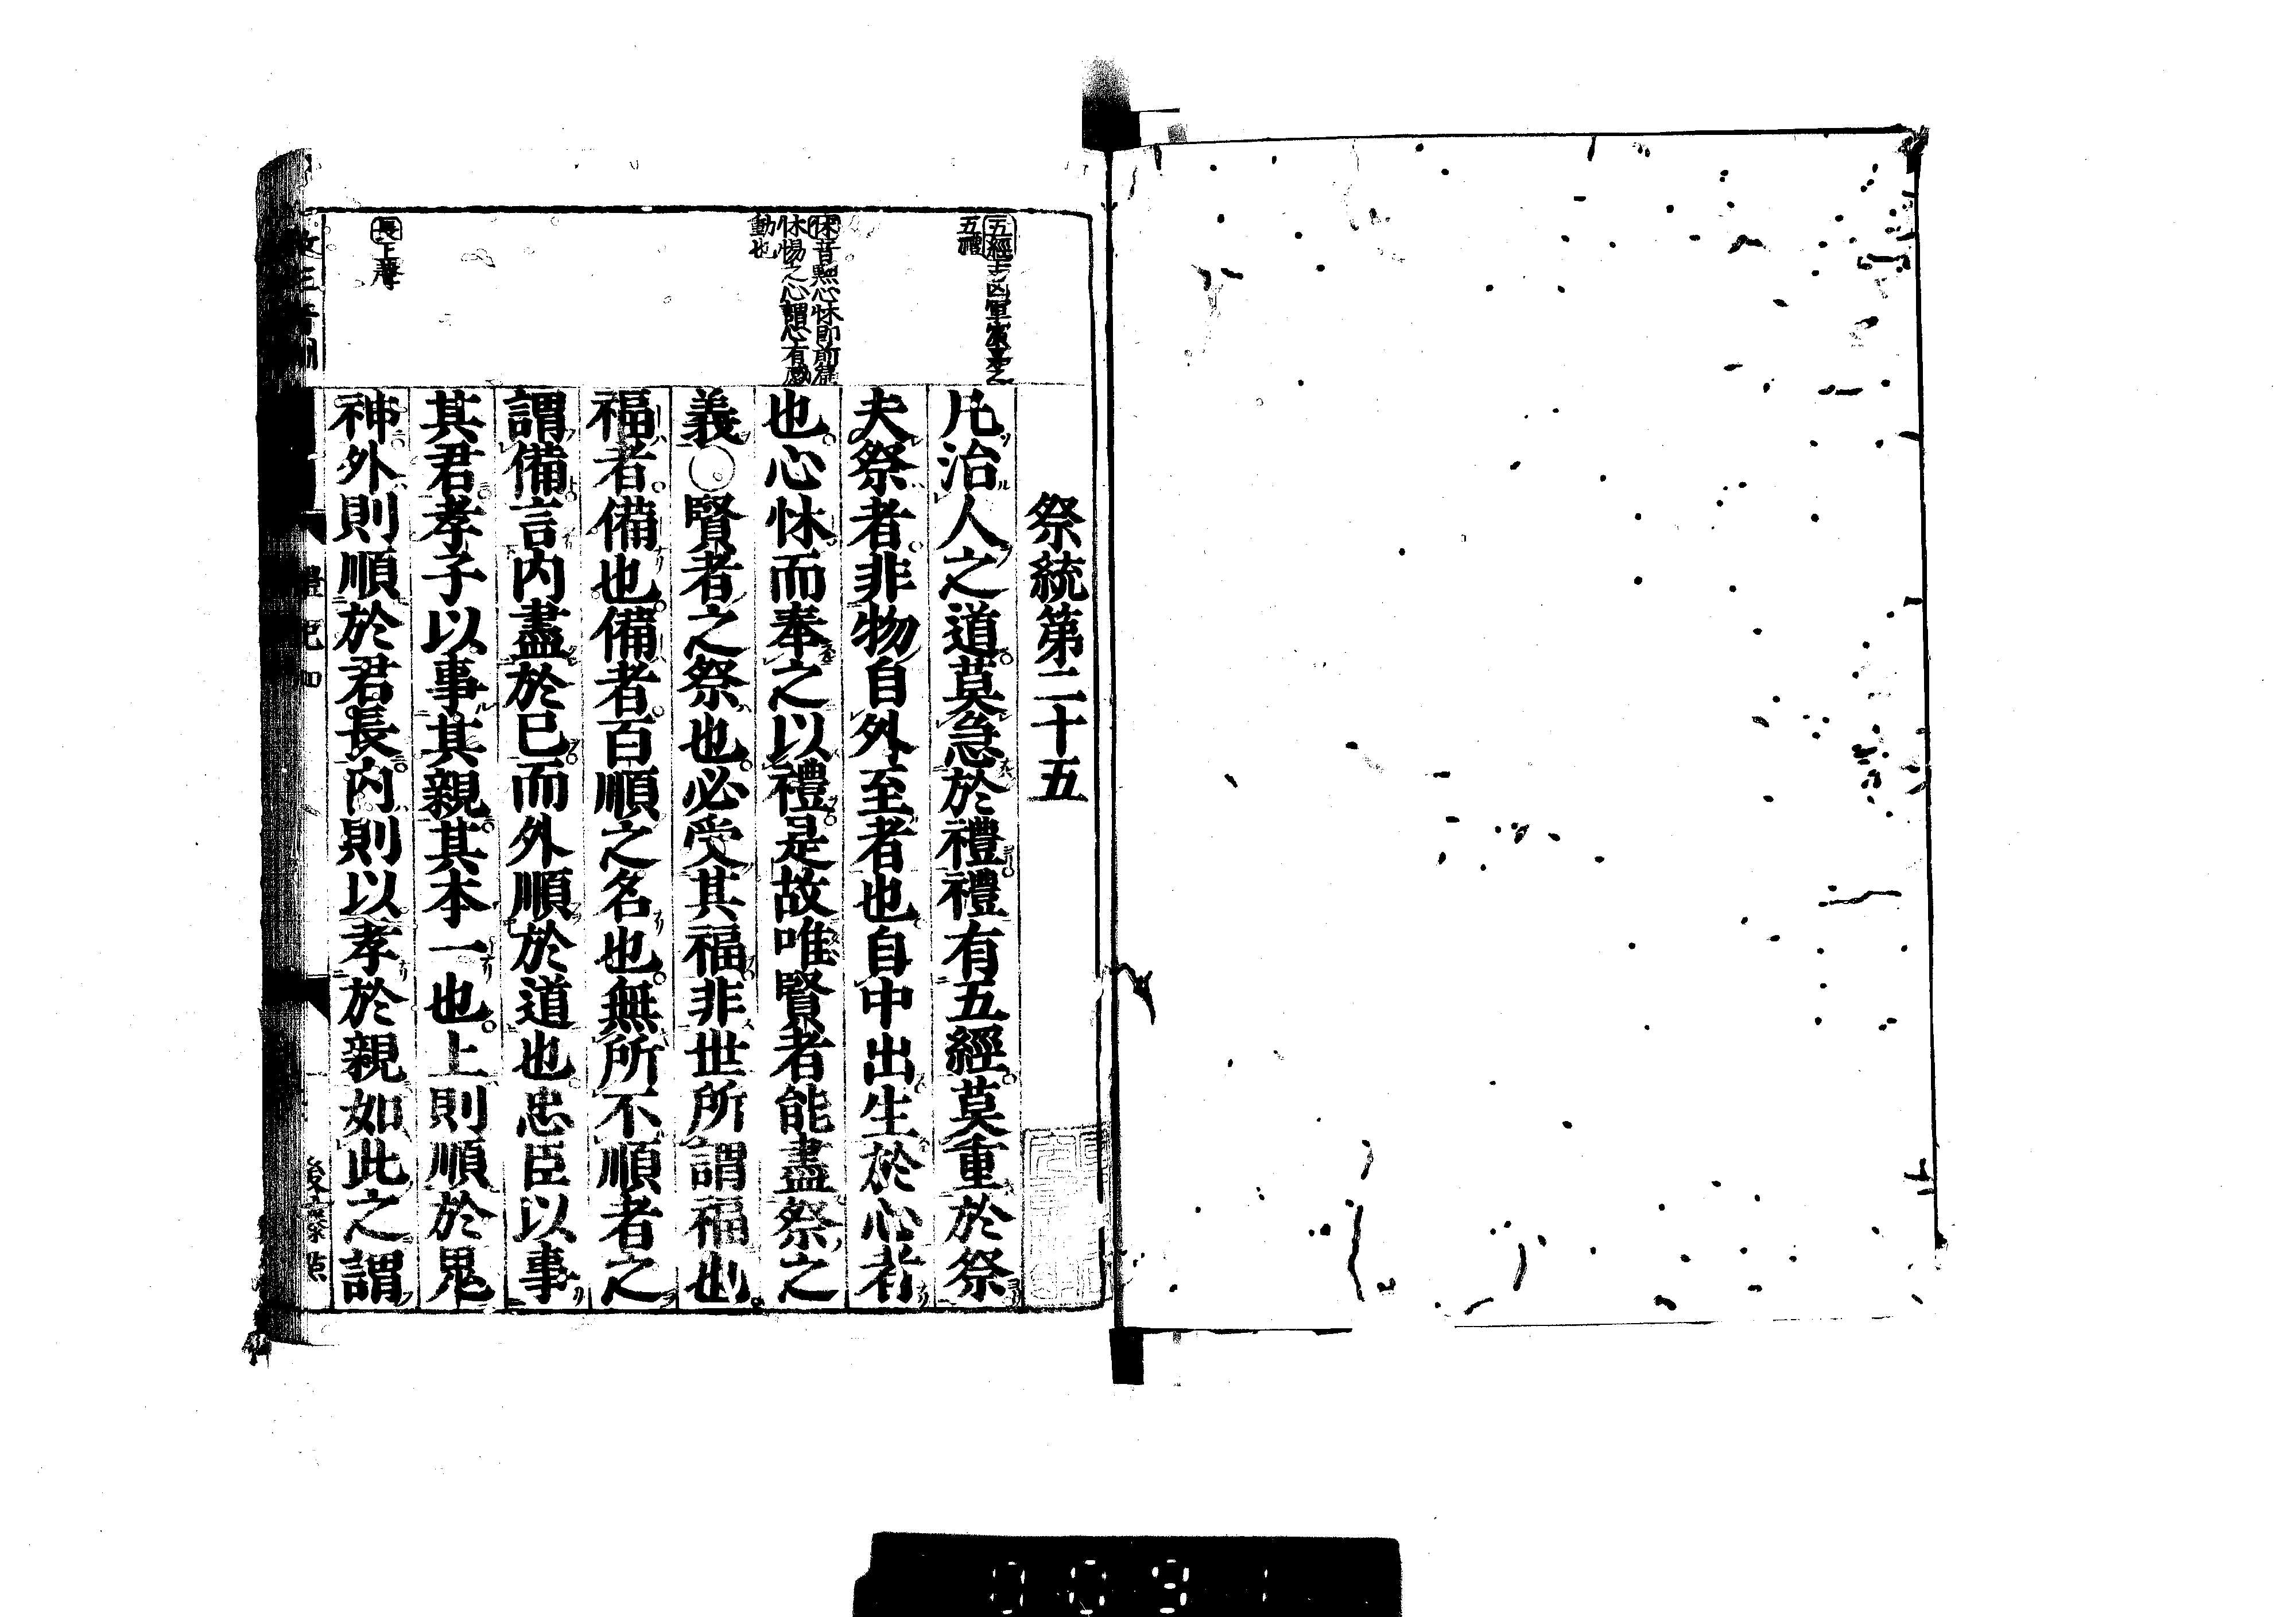 祭統第二十五
凡治人之道莫急於禮禮有五經莫重於祭
夫祭者非物自外至者也自中出生於心者
也心怵而奉之以禮是故唯賢者能盡祭之
義○賢者之祭也必受其福非世所謂福也
福者備也備者百順之名也無所不順者之
謂備言内盡於己而外順於道也忠臣以事
其君孝子以事其親其本一也上則順於鬼
神外則順於君長内則以孝於親如此之謂
五經吉凶軍賓嘉之
五禮
怵音黜心怵即前篇
怵惕之心謂心有感
動也
長上聲
後藤點